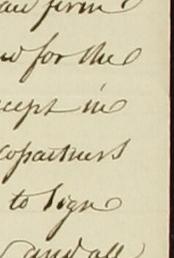 firm
for the
in
copartners
to sign
and all